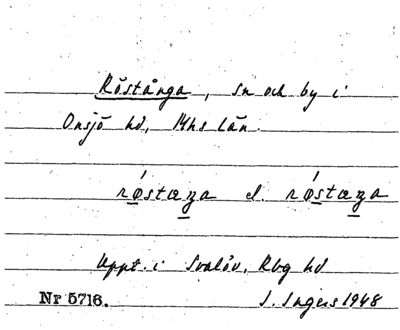 Röstånga, sn och by i
Onsjö hd, Mhs län.
røstæŋa el. røstæŋa
Uppt. i Svalöv, Rbg hd
Nr 5716. I. Ingers 1948